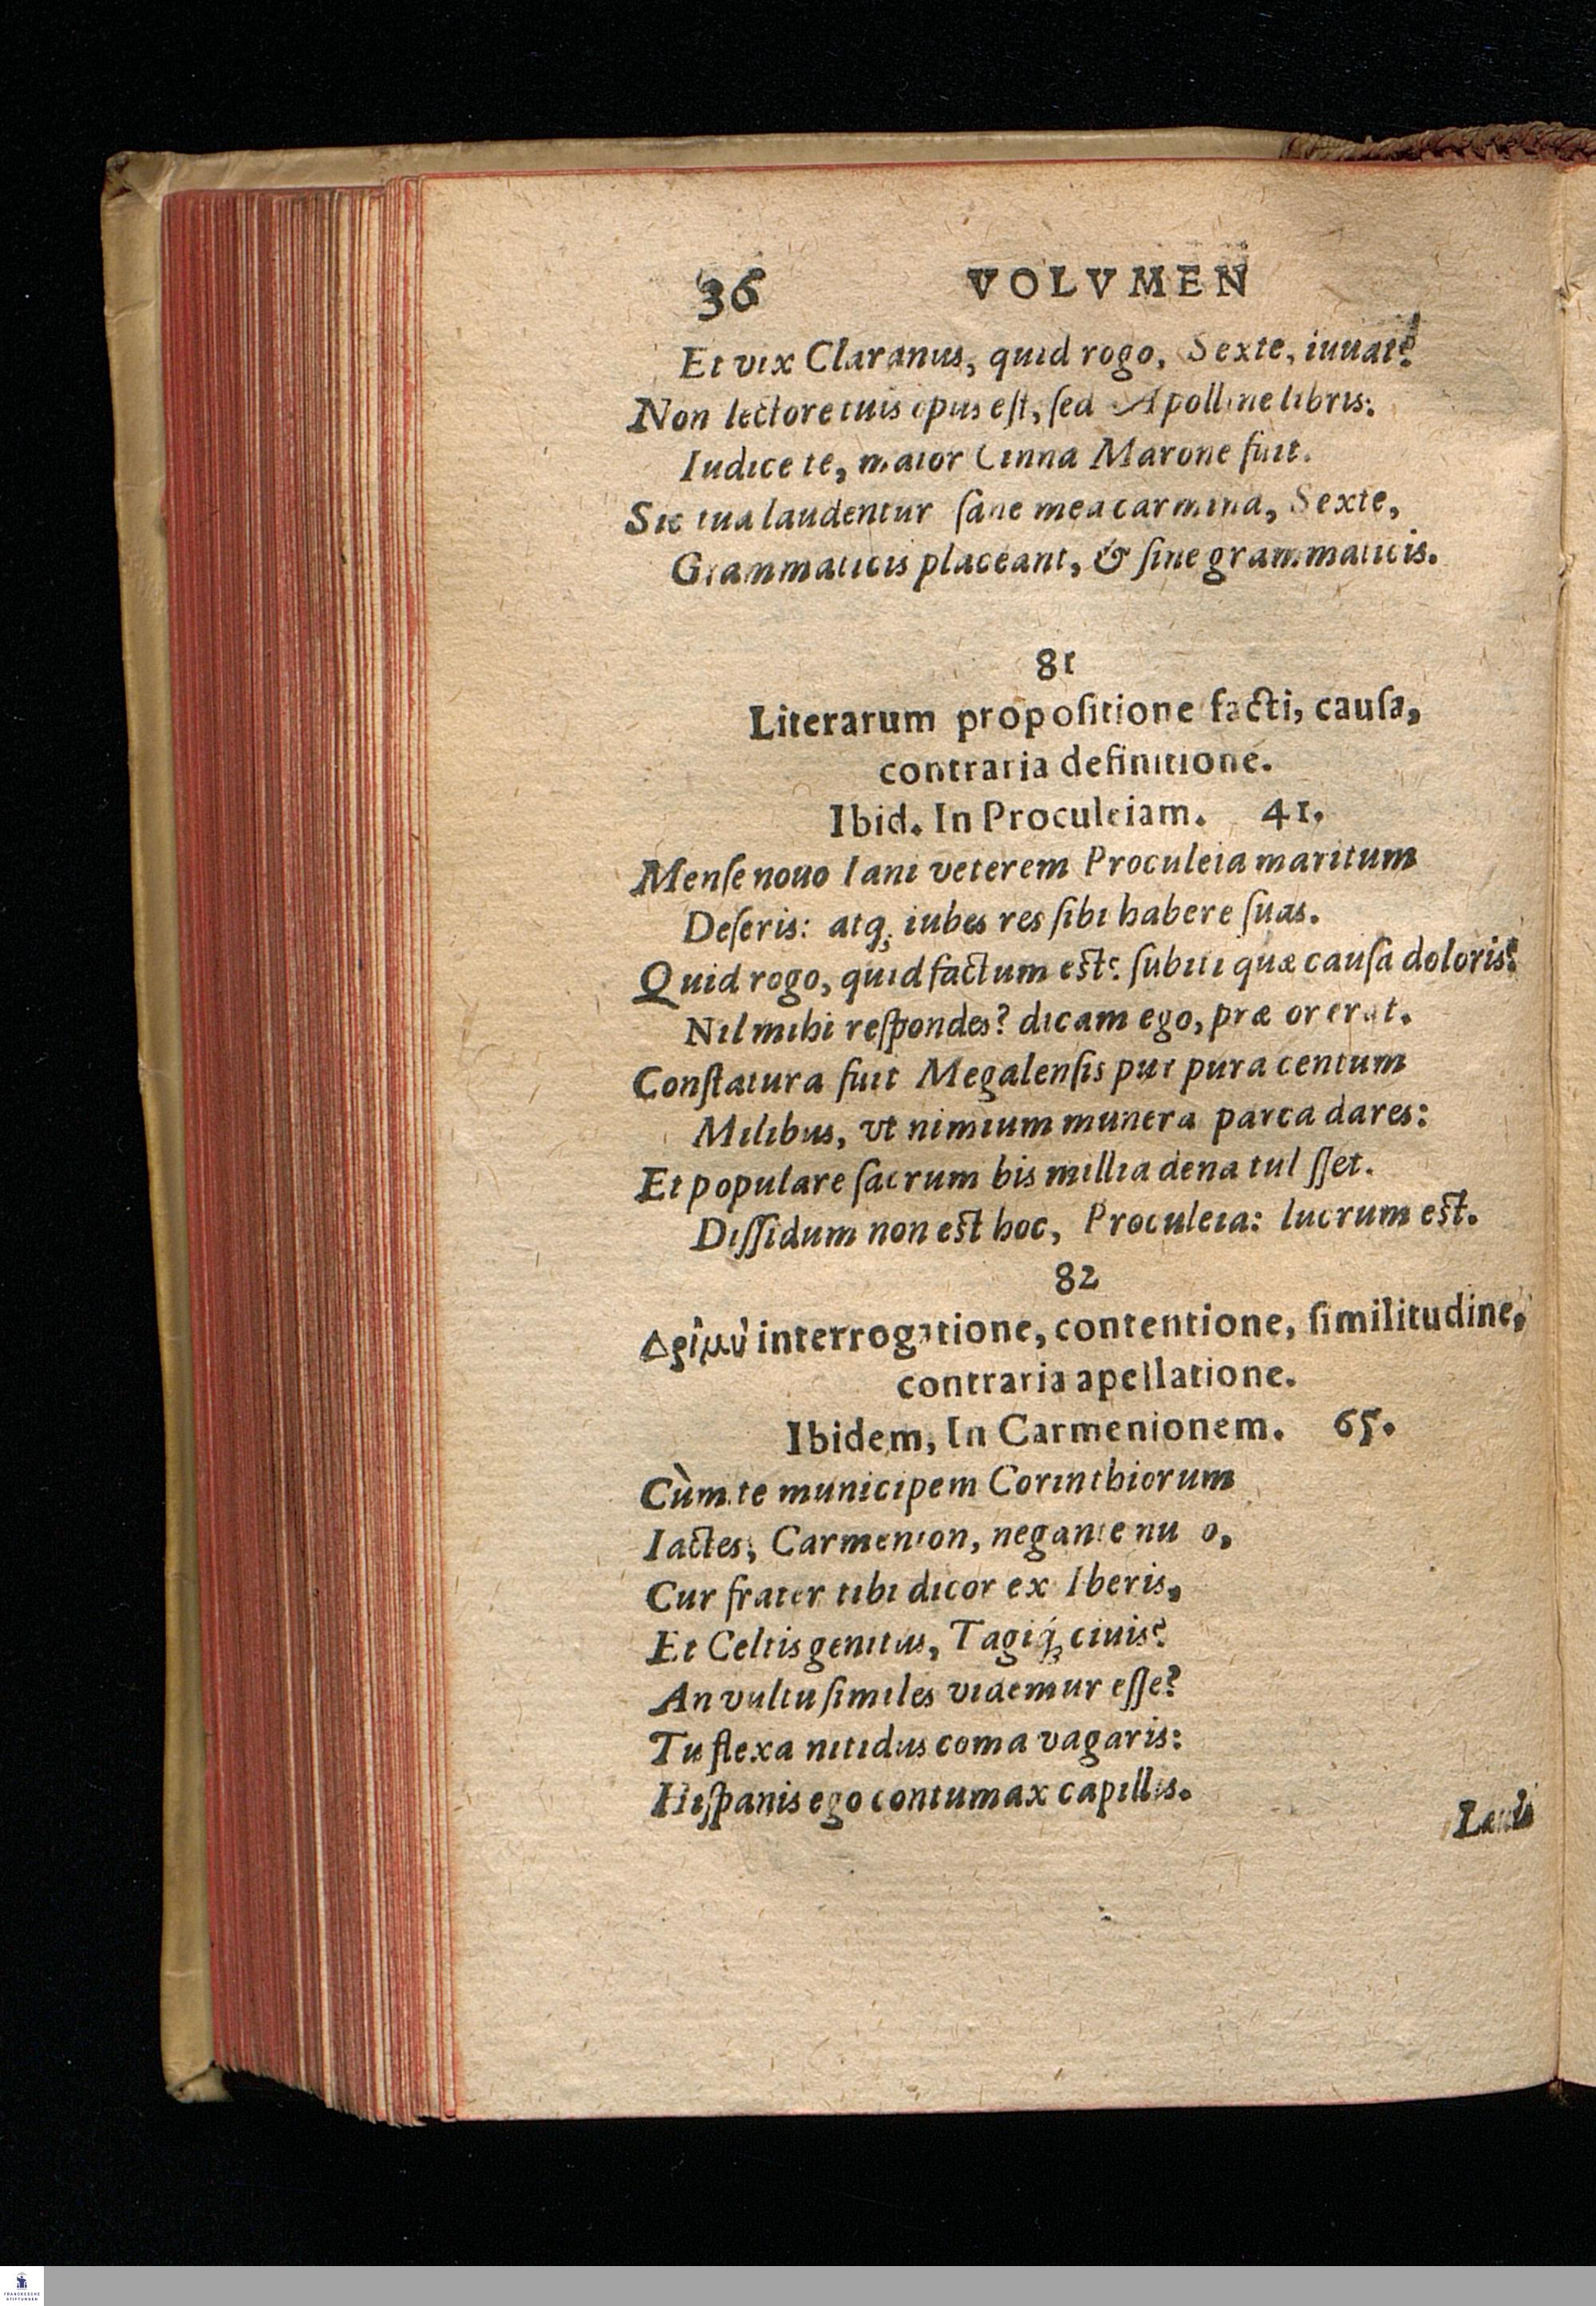 36 VOLVMEN
Et vix Claranus, quid rogo, Sexte, iuuat?
Non lectore tuis opus est, sed Apolline libris:
Iudice te, maior Cinna Marone fuit.
Sic tua laudentur sane mea carmina, Sexte,
Grammaticis placeant, & sine grammaticis.
81
Literarum propositione facti, causa,
contraria definitione.
Ibid. In Proculeiam. 41.
Mense nouo Iani veterem Proculeia maritum
Deseris: atq; iubes res sibi habere suas.
Quid rogo, quid factum est? subiti quæ causa doloris?
Nil mihi respondes? dicam ego, præ or erat.
Constatura fuit Megalensis pur pura centum
Milibus, vt nimium munera parca dares:
Et populare sacrum bis millia dena tul sset.
Dissidum non est hoc, Proculeia: lucrum est.
82
Δριμὺ interrogatione, contentione, similitudine,
contraria apellatione.
Ibidem, In Carmenionem. 65.
Cùm te municipem Corinthiorum
Iactes, Carmenion, negante nu o,
Cur frater tibi dicor ex Iberis,
Et Celtis genitus, Tagiq́; ciuis?
An vultu similes videmur esse?
Tu flexa nitidus coma vagaris:
Hispanis ego contumax capillis.
FRANCKESCHE
STIFTUNGEN